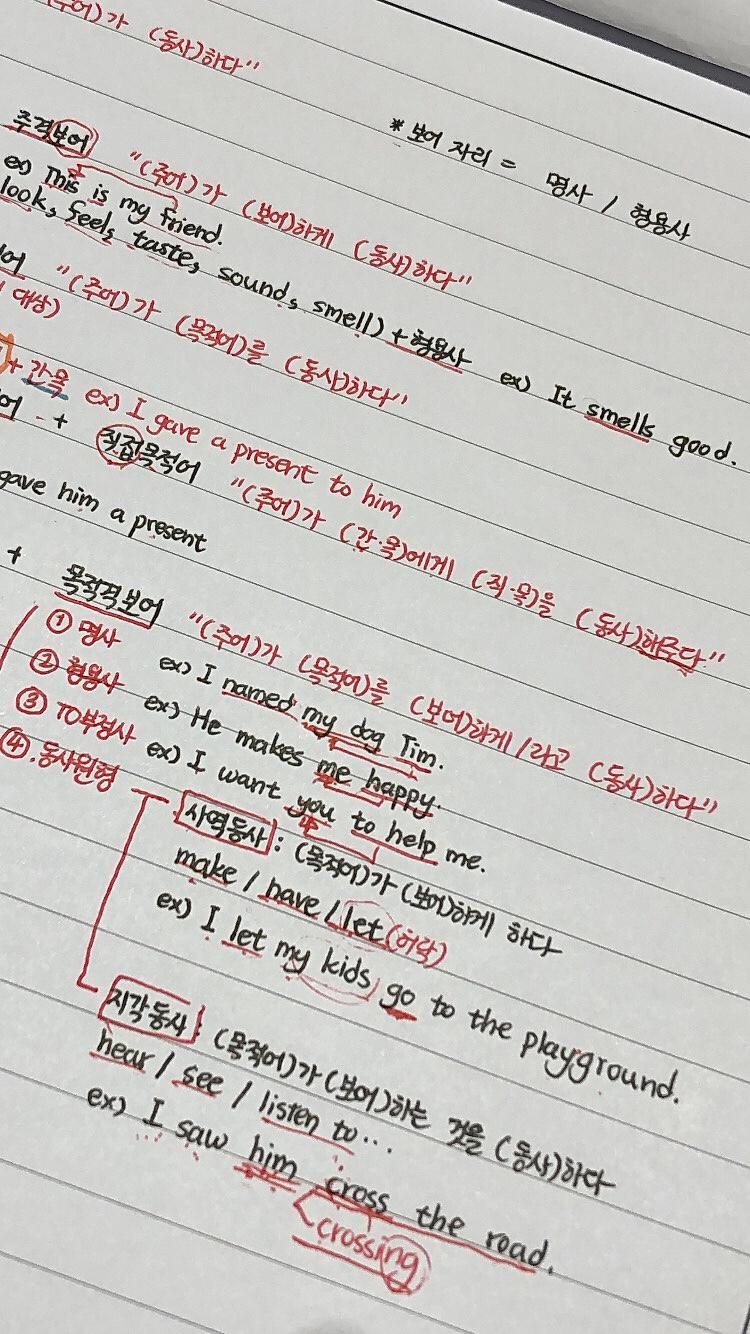 (주어)가 (동사)하다"
* 보어 자리 = 명사 / 형용사
주격보어 "(주어)가 (보어)하게 (동사)하다"
ex) This is my friend.
look, feel, taste, sound, smell) + 형용사 ex) It smells good.
"(주어)가 (목적어)를 (동사)하다"
대상)
+ 간목 ex) I gave a present to him
+ 직접목적어 "(주어)가 (간·목)에게 (직·목)을 (동사)해주다"
gave him a present
+ 목적격보어 "(주어)가 (목적어)를 (보어)하게/라고 (동사)하다"
① 명사 ex) I named my dog Tim.
② 형용사 ex) He makes me happy.
③ TO부정사 ex) I want you to help me.
④.동사원형
사역동사 : (목적어)가 (보어)하게 하다
make / have / let (허락)
ex) I let my kids go to the playground.
지각동사 : (목적어)가 (보어)하는 것을 (동사)하다
hear / see / listen to...
ex) I saw him cross the road.
crossing